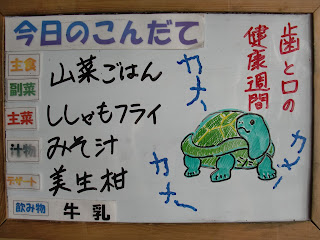 今日のこんだて
主食 山菜ごはん
副菜
主菜 ししゃもフライ
汁物 みそ汁
デザート 美生柑
飲み物 牛乳
歯と口の
健康週間
カナ、
カナ、
カナ、